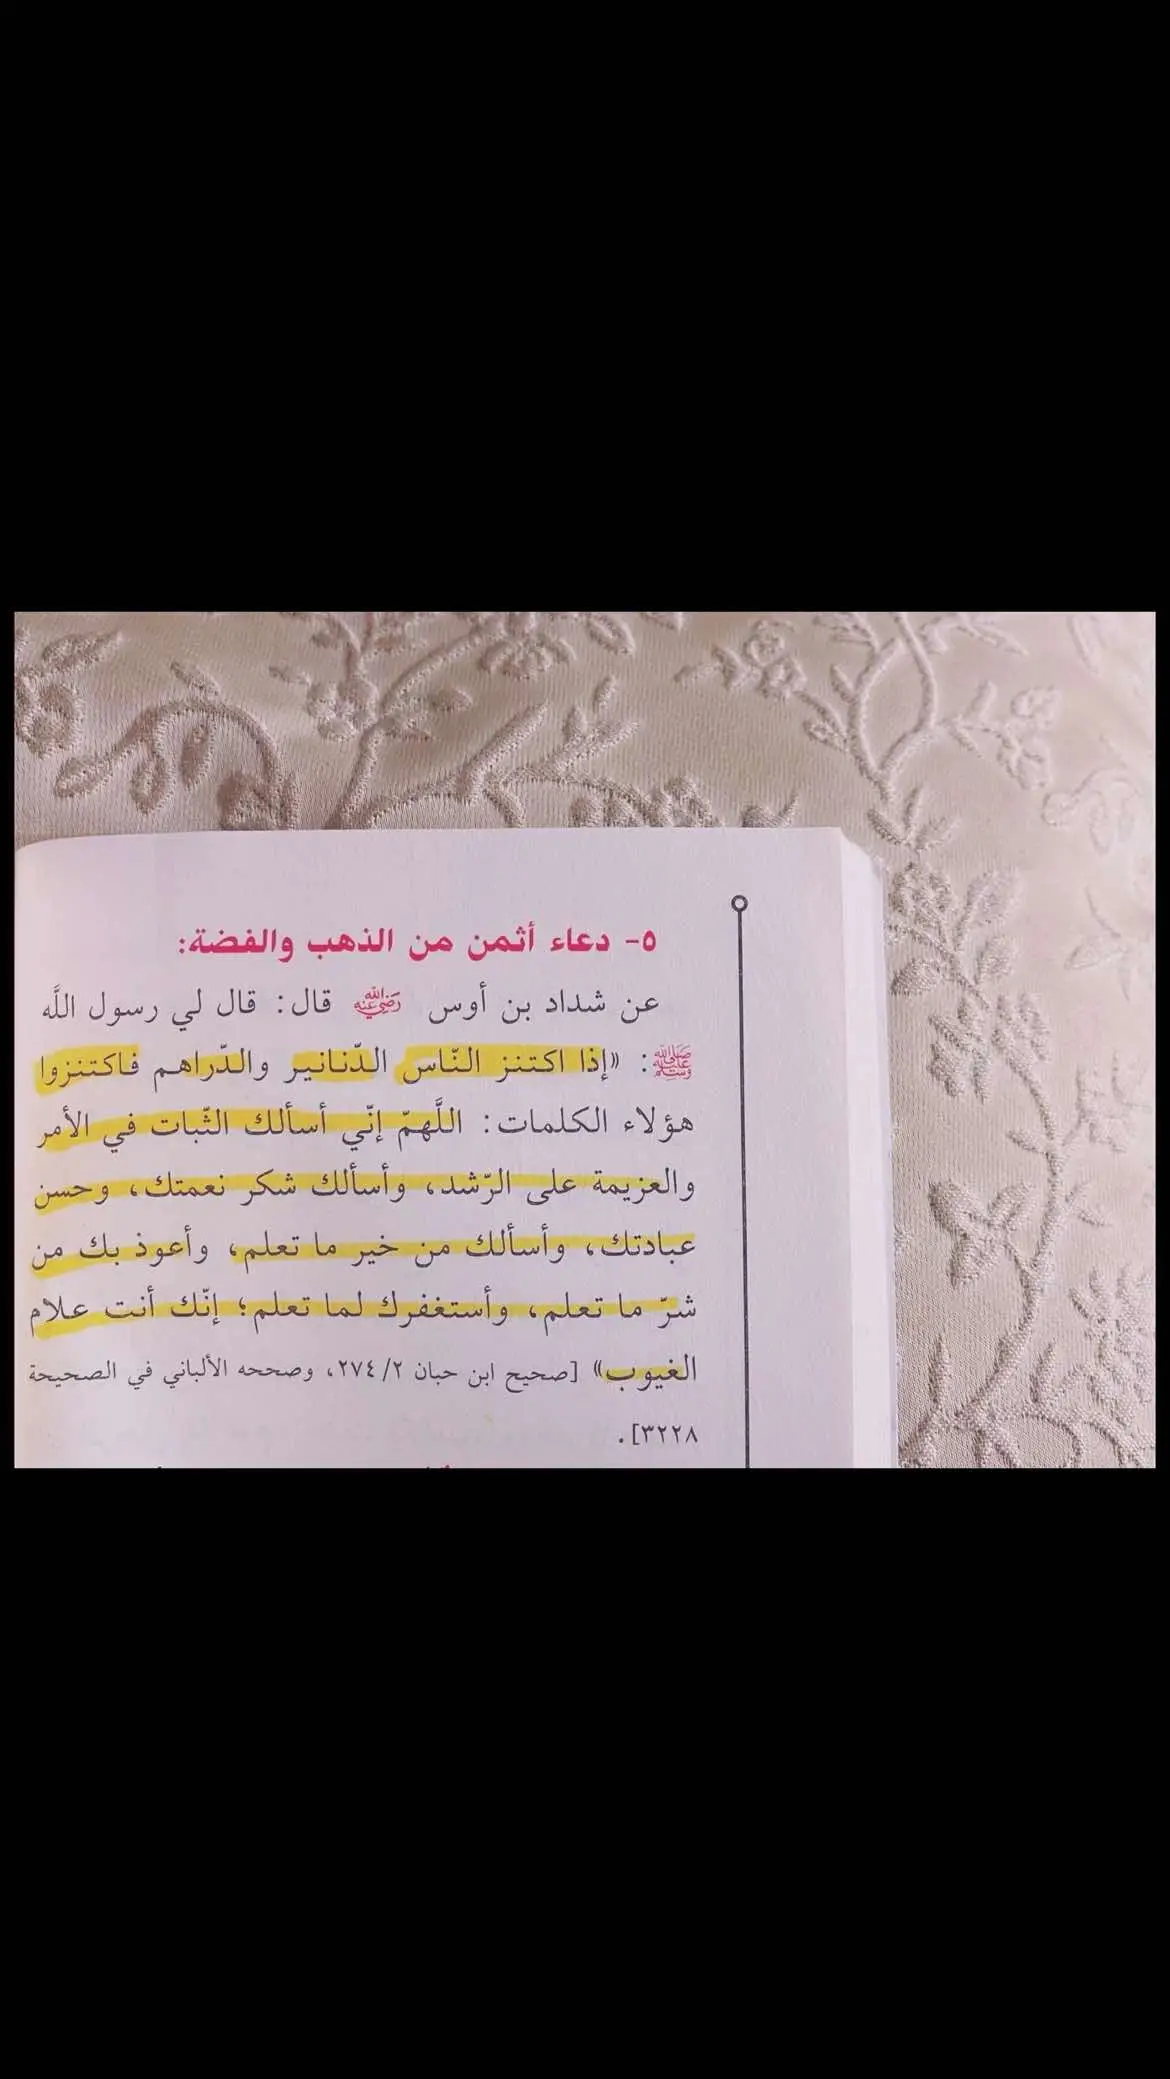 ٥- دعاء أثمن من الذهب والفضة:
عن شداد بن أوس رَضِيَ اللَّهُ عَنْهُ قال: قال لي رسول اللَّه
ﷺ: «إذا اكتنز النّاس الدّنانير والدّراهم فاكتنزوا
هؤلاء الكلمات: اللَّهمّ إنّي أسألك الثّبات في الأمر
والعزيمة على الرّشد، وأسألك شكر نعمتك، وحسن
عبادتك، وأسألك من خير ما تعلم، وأعوذ بك من
شرّ ما تعلم، وأستغفرك لما تعلم؛ إنّك أنت علام
الغيوب» [صحيح ابن حبان ٢/ ٢٧٤، وصححه الألباني في الصحيحة
٣٢٢٨].